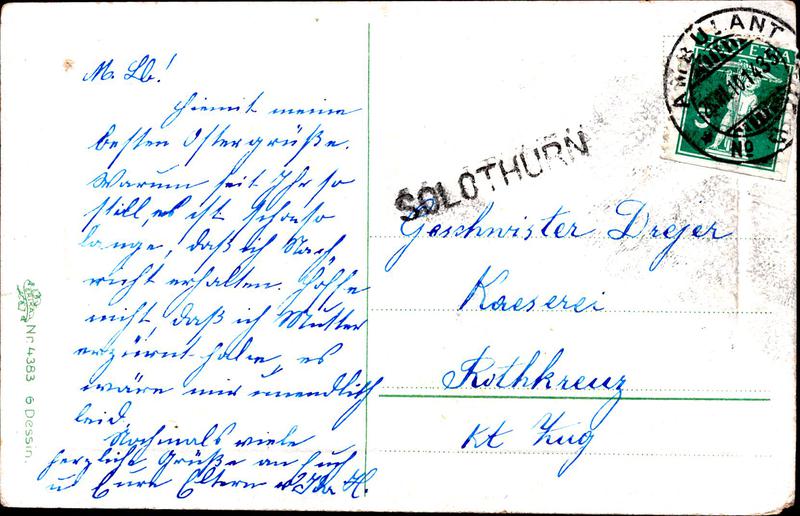 M. Lb!
Hiemit meine
besten Ostergrüße.
Warum seit Ihr so
still, es ist schon so
lange, daß ich Nach
richt erhalten. Hoffe
nicht, daß ich Mutter
erzürnt habe, es
wäre mir unendlich
leid.
Nochmals viele
herzliche Grüße an Euch
u Eure Eltern
SOLOTHURN
Geschwister Drejer
Kaeserei
Rothkreuz
Kt Zug
AMBULANT
No
Nr. 4383 6 Dessin.